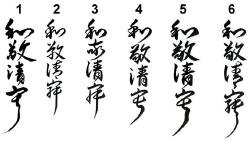 1 2 3 4 5 6
和敬清寂
和敬清寂
和敬清寂
和敬清寂
和敬清寂
和敬清寂